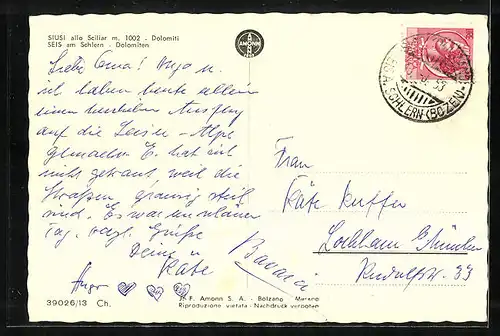 SIUSI allo Sciliar m. 1002 - Dolomiti
SEIS am Schlern - Dolomiten
AMONN
SCHLERN (BOZEN)
Liebe Oma! Hugo u.
ich haben heute allein
einen herrlichen Ausflug
auf die Seiser-Alpe
gemacht. E. hat sich
nicht getraut, weil die
Straßen grausig steil
sind. Es war ein schöner
Tag. Herzl. Grüße
Deine
Käte
Hugo
Frau
Käte Kuffer
Lochham b/München
Rudolfstr. 33
Bavaria
39026/13 Ch.
J. F. Amonn S. A. - Bolzano - Merano
Riproduzione vietata - Nachdruck verboten